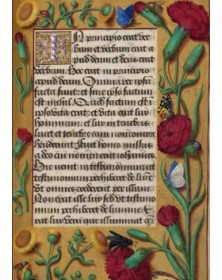 In principio erat ver
bum et verbum erat a
pud deum et deus erat
verbum. Hoc erat in principio
apud deum. Omnia per ipsum
facta sunt: et sine ipso factum
est nichil. Quod factum est in
ipso vita erat: et vita erat lux
hominum: et lux in tenebris
lucet et tenebre eam non com
prehenderunt. Fuit homo missus
a deo cui nomen erat iohannes.
Hic venit in testimonium ut
testimonium perhiberet de lumine
Ut omnes crederent per illum
Non erat ille lux sed ut testimo
nium perhiberet de lumine. E
rat lux vera que illuminat